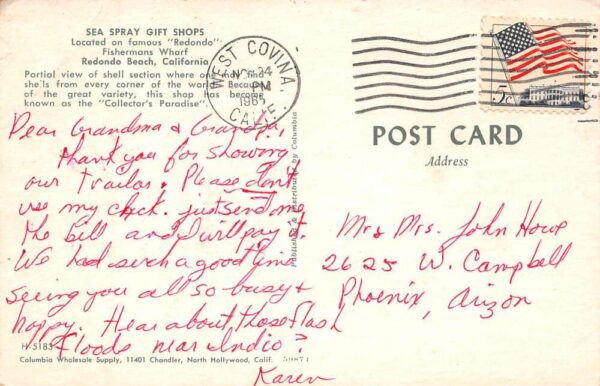 SEA SPRAY GIFT SHOPS
Located on famous "Redondo"
Fishermans Wharf
Redondo Beach, California
Partial view of shell section where one may find
she'ls from every corner of the world. Because
of the great variety, this shop has become
known as the "Collector's Paradise".
WEST COVINA,
NOV 24
PM
CALIF.
5c
Dear Grandma & Grandpa,
Thank you for showing
our trailor. Please don't
use my chck. just send me
the bill and I will pay it.
We had such a good time
seeing you all so busy &
happy. Hear about those flash
floods near Indio?
Karen
H-5183
Columbia Wholesale Supply, 11401 Chandler, North Hollywood, Calif.
Published & Distributed by Columbia
POST CARD
Address
Mr & Mrs. John Howe
2625 W. Campbell
Phoenix, Arizon